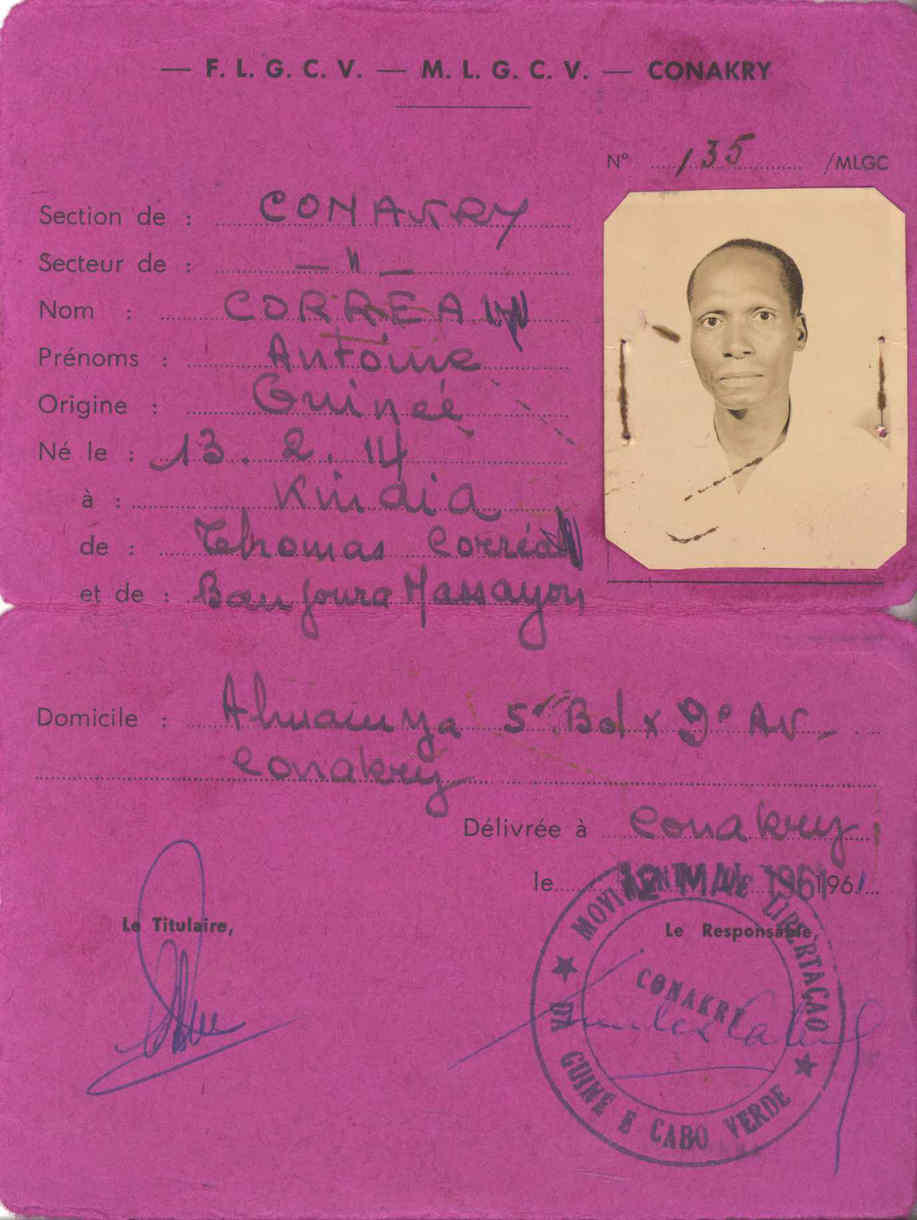 — F. L. G. C. V. — M. L. G. C. V. — CONAKRY
N° 135 /MLGC
Section de : CONAKRY
Secteur de : — " —
Nom : CORRÉA
Prénoms : Antoine
Origine : Guinée
Né le : 13. 2. 14
à : Kindia
de : Thomas Corréa
et de : Massayon
Domicile : Almamya 5e Bd x 9e Av.
Conakry
Délivrée à Conakry
le 12 MAI 1961 1961
Le Titulaire,
Le Responsable,
MOVIMENTO DE LIBERTAÇÃO
DA GUINE E CABO VERDE
CONAKRY